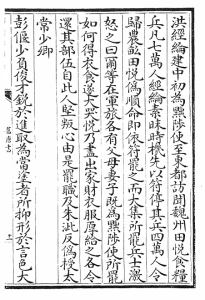 洪經綸建中初為黜陟使至東都訪聞魏州田悅食糧
兵凡七萬人經綸素昧時機先以符停其兵四萬人令
歸農畝田悅偽順命即依符罷之而大集所罷兵士激
怒之曰爾等在軍旅各有父母妻子既為黜陟使所罷
如何得衣食遂大哭悅乃盡出家財衣服厚給之各令
還其部伍自此人堅叛心由是罷職及朱泚反偽授太
常少卿
彭偃少負俊才銳於進取為當塗者所抑形於言色大
舊唐書